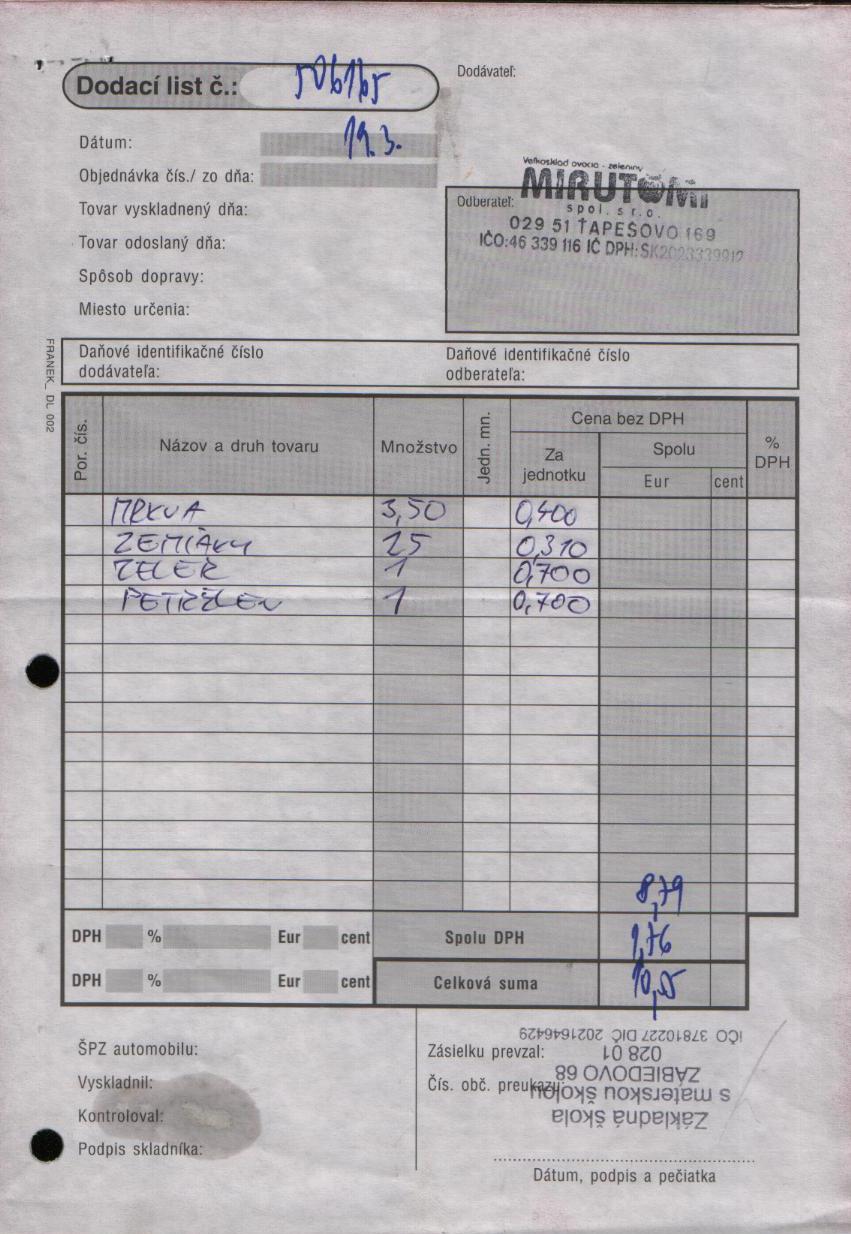 Dodací list č.: 506165
Dodávateľ:
Dátum: 19.3.
Objednávka čís./ zo dňa:
Tovar vyskladnený dňa:
Tovar odoslaný dňa:
Spôsob dopravy:
Miesto určenia:
Veľkosklad ovocia - zeleniny
MIRUTOMI
Odberateľ:
spol. s r.o.
029 51 ŤAPEŠOVO 169
IČO:46 339 116 IČ DPH:SK2023339912
FRANEK_ DL 002
Daňové identifikačné číslo
dodávateľa:
Daňové identifikačné číslo
odberateľa:
Por. čís.
Názov a druh tovaru
Množstvo
Jedn. mn.
Cena bez DPH
Za
jednotku
Spolu
Eur
cent
%
DPH
MRKVA 3,50 0,400
ZEMIAKY 25 0,310
ZELER 1 0,700
PETRŽLEN 1 0,700
8,79
DPH % Eur cent
Spolu DPH 1,76
DPH % Eur cent
Celková suma 10,55
ŠPZ automobilu:
Vyskladnil:
Kontroloval:
Podpis skladníka:
Zásielku prevzal:
Čís. obč. preukazu:
Základná škola
s materskou školou
ZÁBIEDOVO 68
028 01
IČO 37810227 DIČ 2021646429
Dátum, podpis a pečiatka